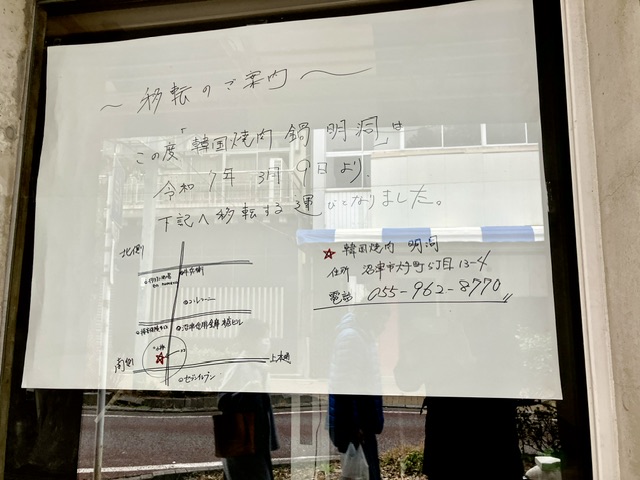 ～移転のご案内～
この度「韓国焼肉 鍋 明洞」は
令和7年3月9日より、
下記へ移転する運びとなりました。
北側
南側
上本通
セブンイレブン
韓国焼肉 明洞
住所 沼津市大手町5丁目13-4
電話 055-962-8770